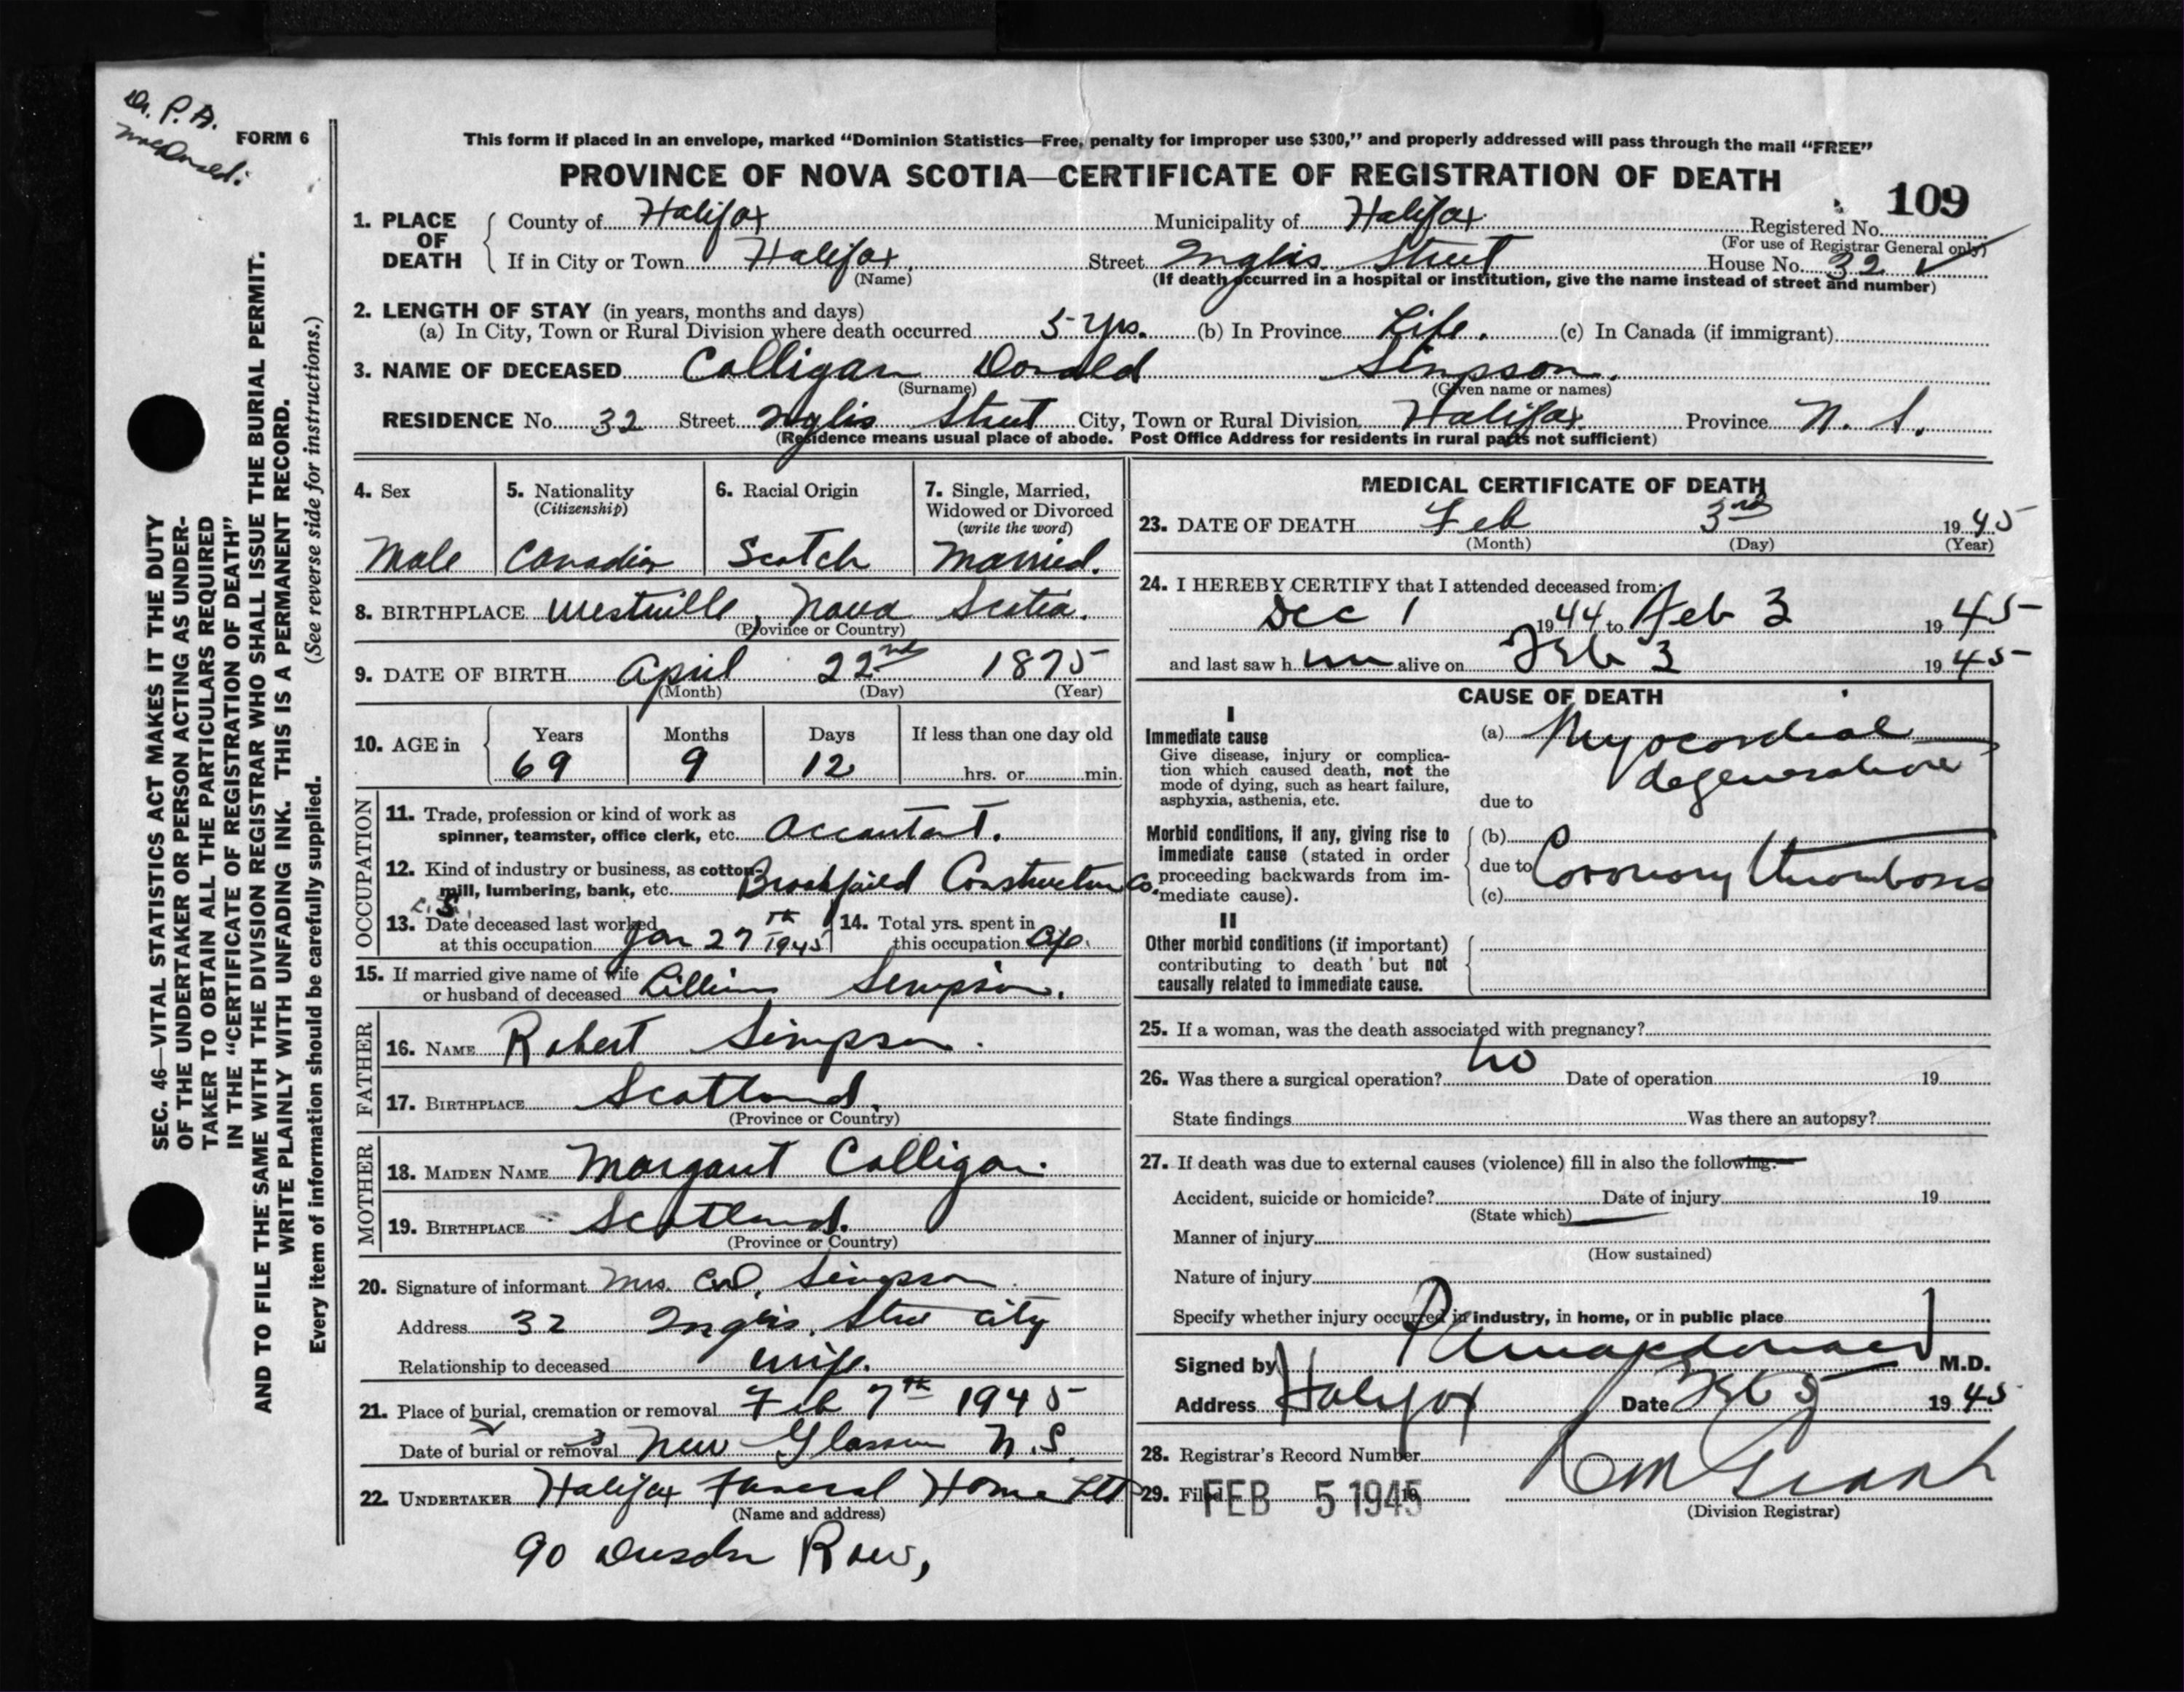 Dr. P. A.
MacDonald.
FORM 6
This form if placed in an envelope, marked “Dominion Statistics—Free, penalty for improper use $300,” and properly addressed will pass through the mail “FREE”
PROVINCE OF NOVA SCOTIA—CERTIFICATE OF REGISTRATION OF DEATH
109
1. PLACE OF DEATH County of Halifax Municipality of Halifax Registered No.
(For use of Registrar General only)
If in City or Town Halifax Street Inglis Street House No. 32
(Name) (If death occurred in a hospital or institution, give the name instead of street and number)
2. LENGTH OF STAY (in years, months and days)
(a) In City, Town or Rural Division where death occurred 5 yrs. (b) In Province Life. (c) In Canada (if immigrant)
3. NAME OF DECEASED Calligan Donald Simpson.
(Surname) (Given name or names)
RESIDENCE No. 32 Street Inglis Street City, Town or Rural Division Halifax Province N. S.
(Residence means usual place of abode. Post Office Address for residents in rural parts not sufficient)
4. Sex
Male
5. Nationality
(Citizenship)
Canadian
6. Racial Origin
Scotch
7. Single, Married,
Widowed or Divorced
(write the word)
Married.
8. BIRTHPLACE Westville, Nova Scotia.
(Province or Country)
9. DATE OF BIRTH April 22nd 1875
(Month) (Day) (Year)
10. AGE in Years Months Days If less than one day old
69 9 12 hrs. or min.
OCCUPATION
11. Trade, profession or kind of work as
spinner, teamster, office clerk, etc. Accantant.
12. Kind of industry or business, as cotton
mill, lumbering, bank, etc. Brookfield Construction Co.
13. Date deceased last worked
at this occupation Jan 27th 1945
14. Total yrs. spent in
this occupation
15. If married give name of wife
or husband of deceased Lillian Simpson.
FATHER
16. NAME Robert Simpson.
17. BIRTHPLACE Scotland.
(Province or Country)
MOTHER
18. MAIDEN NAME Margaret Calligan.
19. BIRTHPLACE Scotland.
(Province or Country)
20. Signature of informant Mrs. C.D. Simpson.
Address 32 Inglis Stree City
Relationship to deceased wife.
21. Place of burial, cremation or removal Feb 7th 1945
Date of burial or removal New Glasgow N.S.
22. UNDERTAKER Halifax Funeral Home Ltd
(Name and address)
90 Dresden Row,
MEDICAL CERTIFICATE OF DEATH
23. DATE OF DEATH Feb 3rd 1945
(Month) (Day) (Year)
24. I HEREBY CERTIFY that I attended deceased from:
Dec 1 1944 to Feb 3 1945
and last saw h im alive on Feb 3 1945
CAUSE OF DEATH
I
Immediate cause
Give disease, injury or complica-
tion which caused death, not the
mode of dying, such as heart failure,
asphyxia, asthenia, etc.
(a) Myocardial
degeneration
due to
Morbid conditions, if any, giving rise to
immediate cause (stated in order
proceeding backwards from im-
mediate cause).
(b)
due to Coronary thrombosis
(c)
II
Other morbid conditions (if important)
contributing to death but not
causally related to immediate cause.
25. If a woman, was the death associated with pregnancy?
26. Was there a surgical operation? no Date of operation 19
State findings Was there an autopsy?
27. If death was due to external causes (violence) fill in also the following:
Accident, suicide or homicide? Date of injury 19
(State which)
Manner of injury
(How sustained)
Nature of injury
Specify whether injury occurred in industry, in home, or in public place
Signed by P A Macdonald M.D.
Address Halifax Date Feb 5 1945
28. Registrar's Record Number
29. Filed FEB 5 1945 19
(Division Registrar)
SEC. 46—VITAL STATISTICS ACT MAKES IT THE DUTY
OF THE UNDERTAKER OR PERSON ACTING AS UNDER-
TAKER TO OBTAIN ALL THE PARTICULARS REQUIRED
IN THE “CERTIFICATE OF REGISTRATION OF DEATH”
AND TO FILE THE SAME WITH THE DIVISION REGISTRAR WHO SHALL ISSUE THE BURIAL PERMIT.
WRITE PLAINLY WITH UNFADING INK. THIS IS A PERMANENT RECORD.
Every item of information should be carefully supplied. (See reverse side for instructions.)